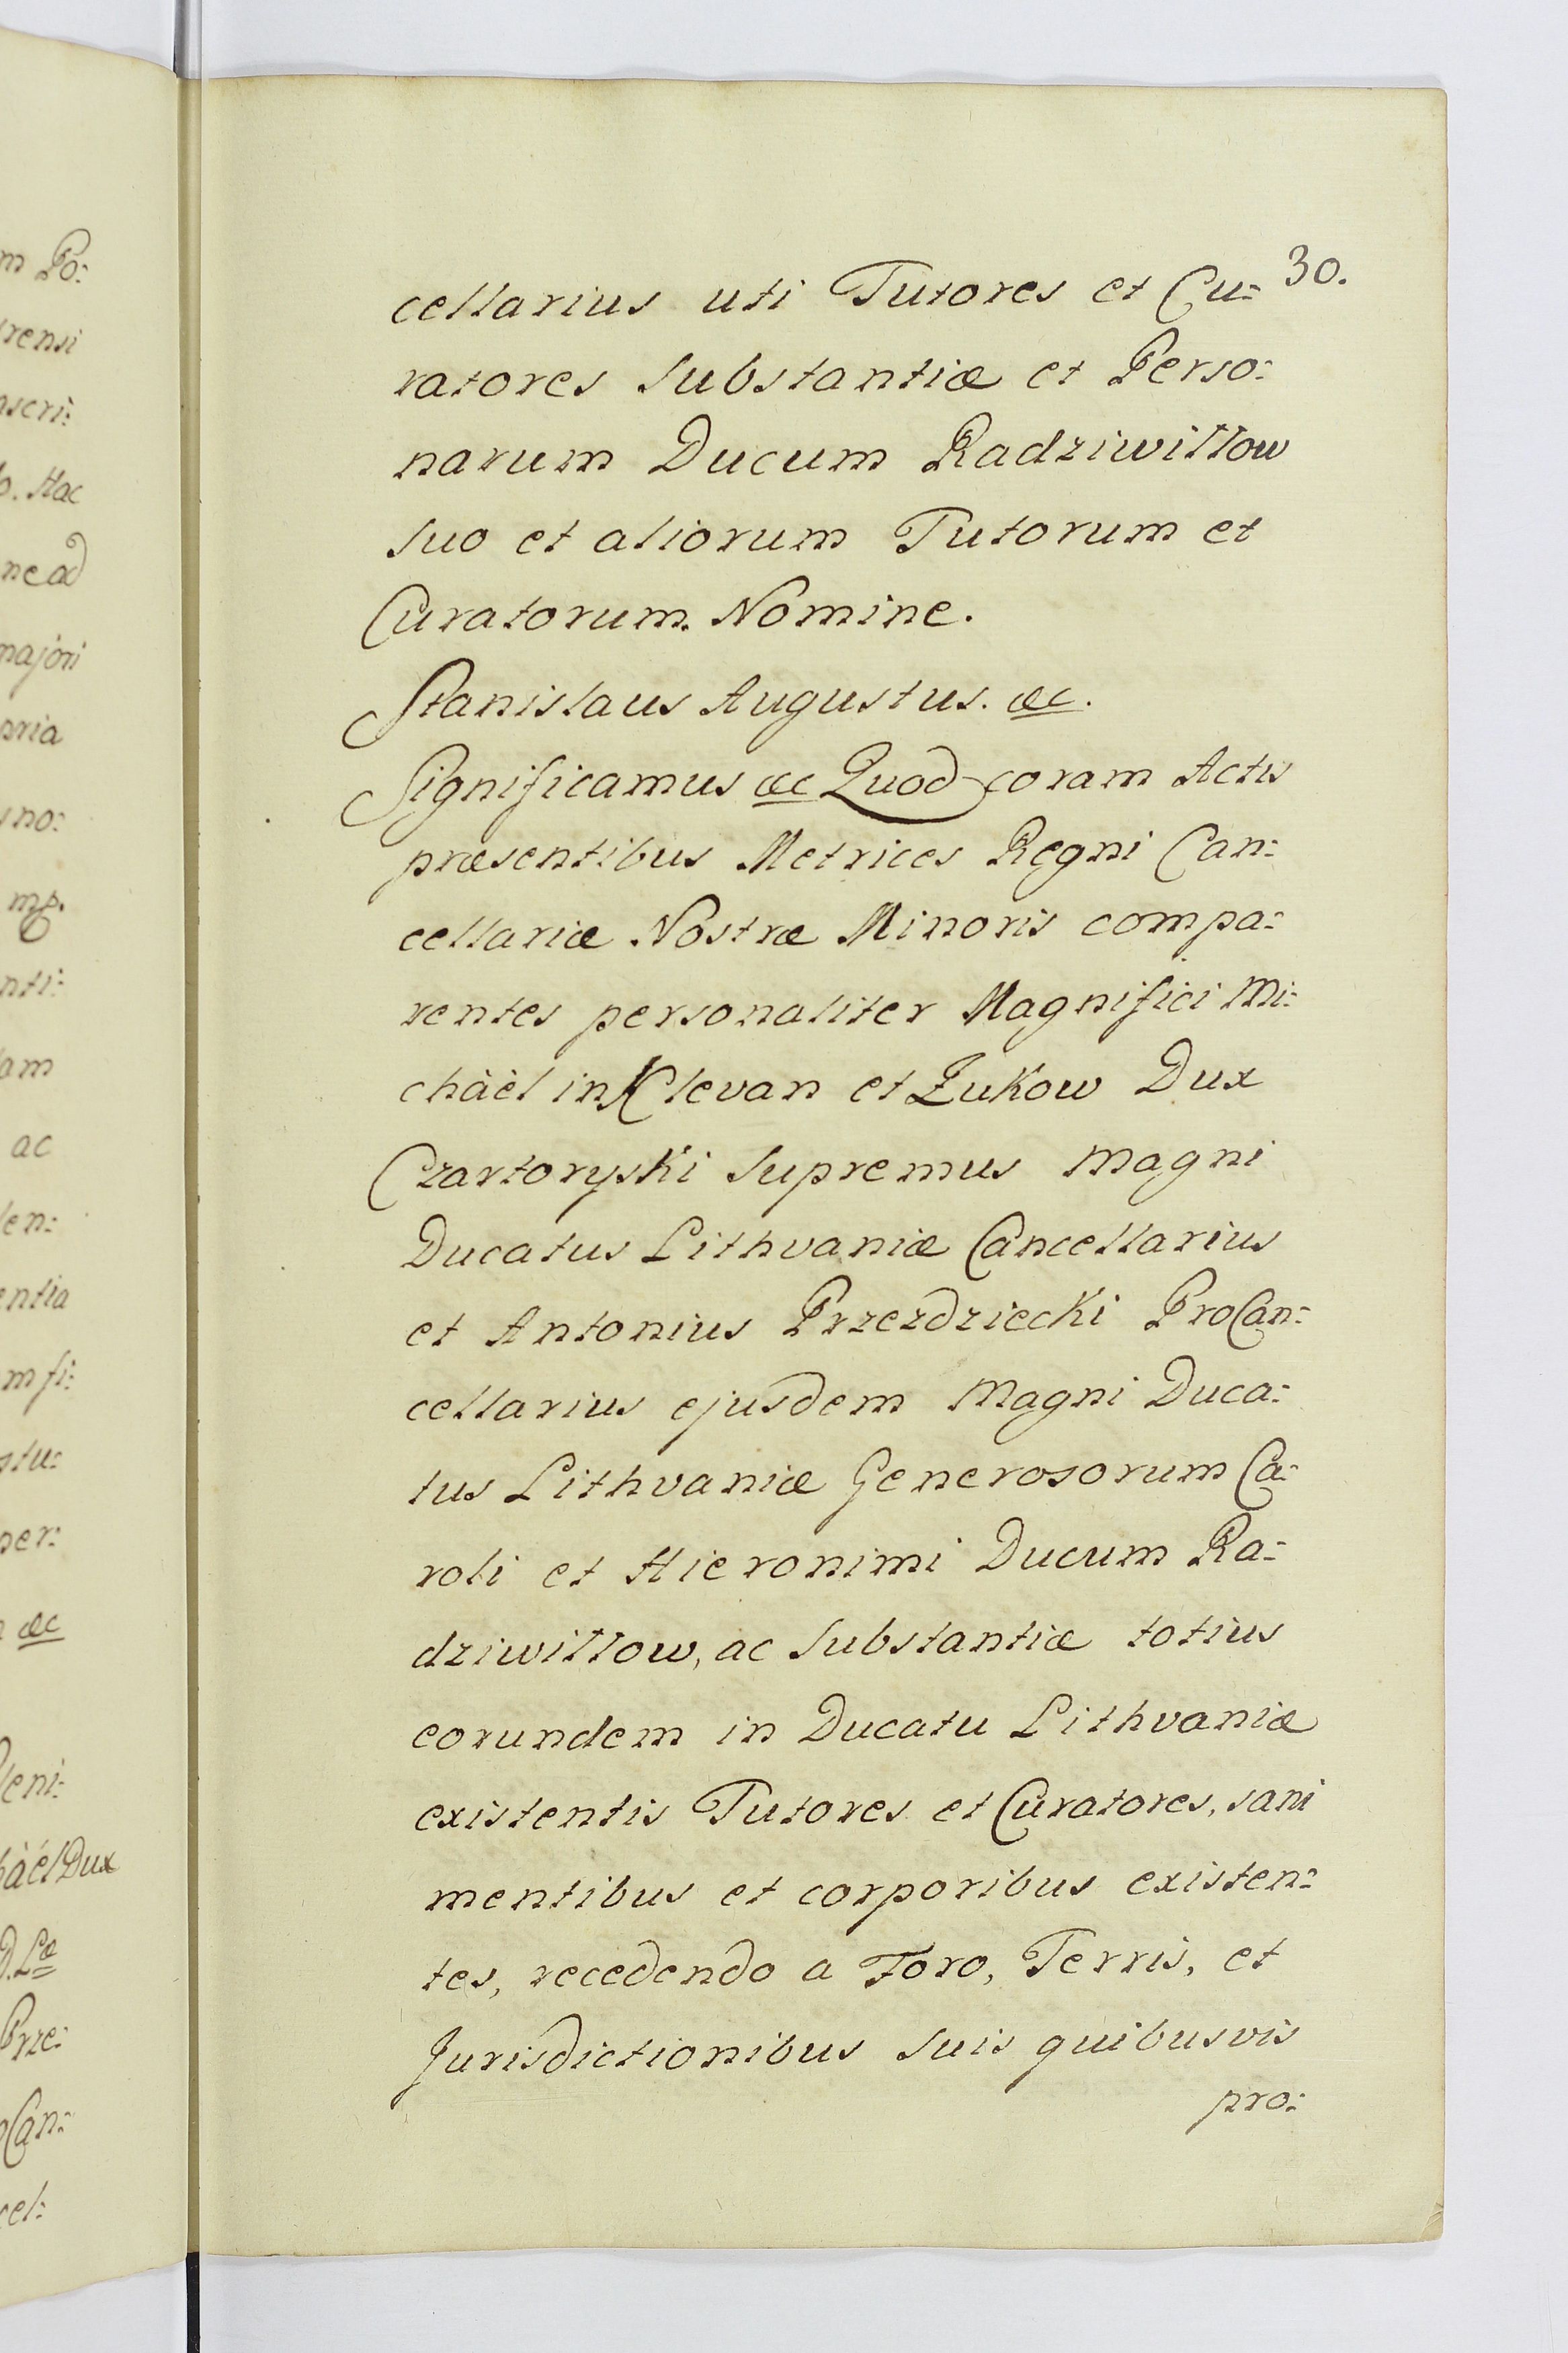 30.
cellarius uti Tutores et Cu:
ratores Substantiæ et Perso:
narum Ducum Radziwiłłow
suo et aliorum Tutorum et
Curatorum. Nomine.
Stanislaus Augustus. &c.
Significamus &c Quod coram Actis
præsentibus Metrices Regni Can:
cellariæ Nostræ Minoris compa:
rentes personaliter Magnifici Mi:
chàèl in Klevan et Zukow Dux
Czartoryski Supremus Magni
Ducatus Lithvaniæ Cancellarius
et Antonius Przezdziecki ProCan:
cellarius ejusdem Magni Duca:
tus Lithvaniæ Generosorum Ca:
roli et Hieronimi Ducum Ra:
dziwiłłow, ac Substantiæ totius
eorundem in Ducatu Lithvaniæ
existentis Tutores et Curatores, sani
mentibus et corporibus existen:
tes, recedendo a Foro, Terris, et
Jurisdictionibus suis quibusvis
pro:
m Po:
rensi
scri:
o. Hac
ne ad
majori
oria
no:
mp.
nti:
am
ac
len:
entia
m fi:
stu:
per:
&c
leni:
hàèl Dux
D. Læ
Prze:
oCan:
cel: